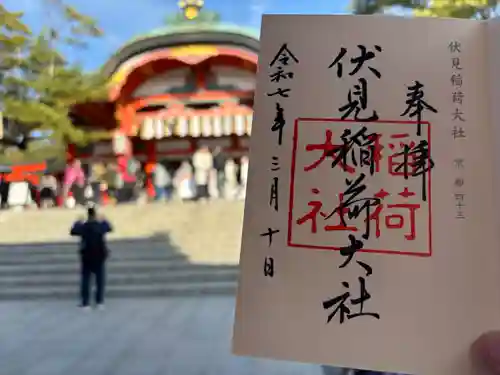 伏見稲荷大社 京都四十三
奉拝
伏見稲荷大社
稲荷
大社
令和七年三月十日